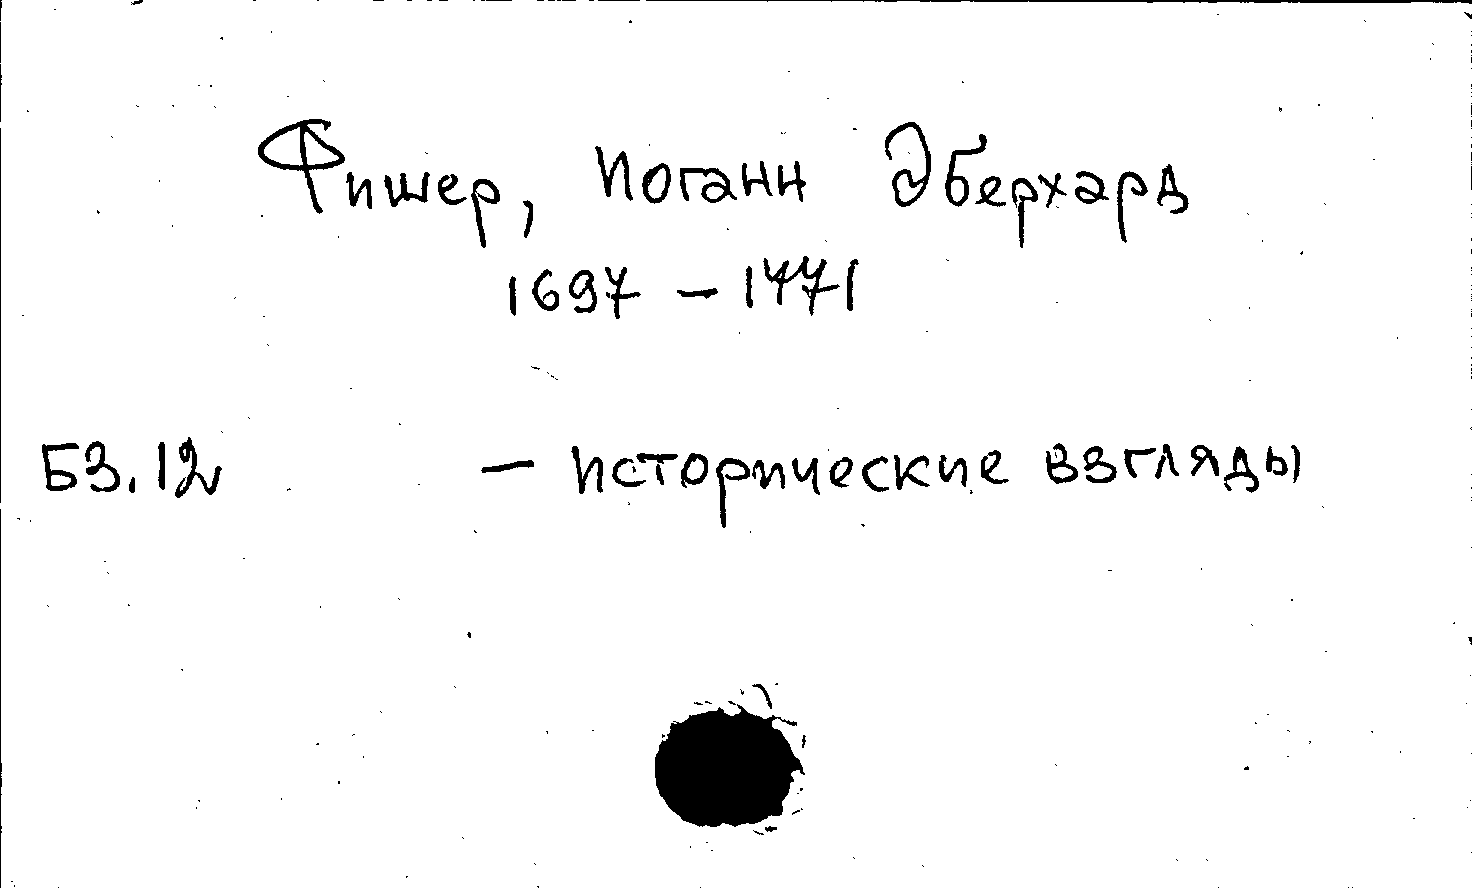 Фишер, Иоганн Эберхард
1697 – 1771
Б3.12 – исторические взгляды